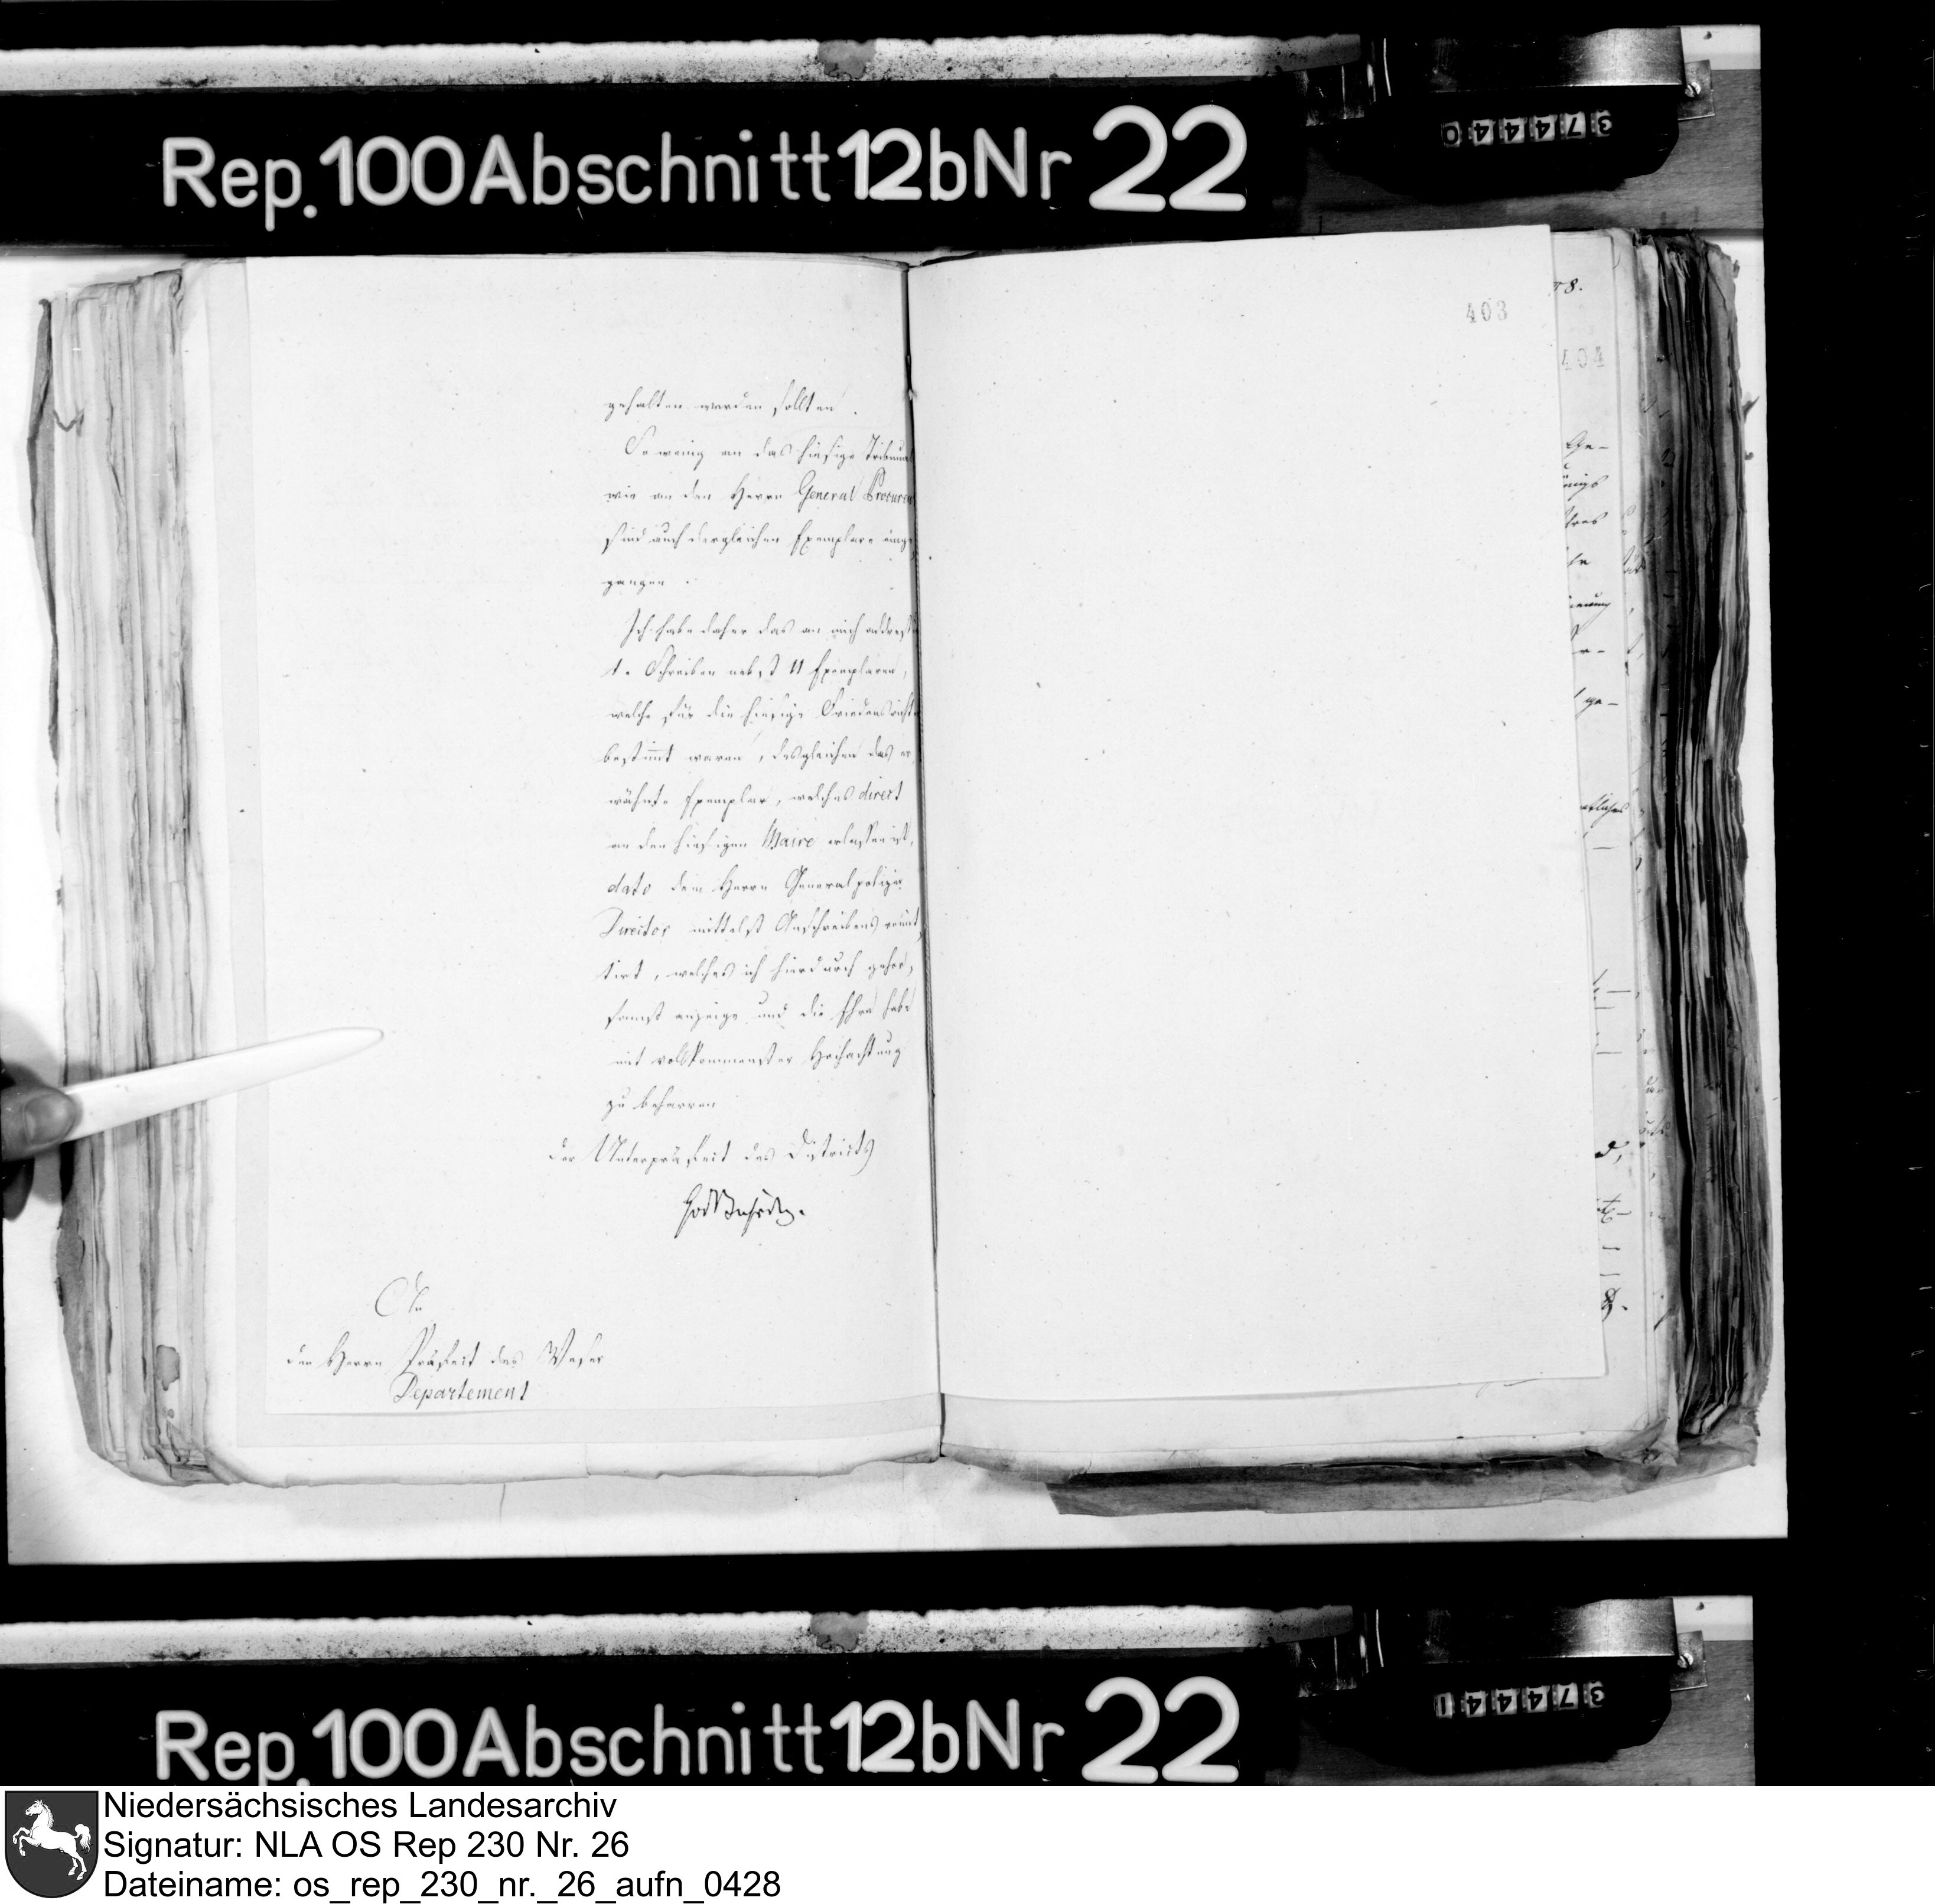 Rep. 100 Abschnitt 12b Nr 22
374440
403
78.
404
gehalten werden sollten.
So wenig an das hiesige Tribunal
wie an den Herrn General Procureu
sind auch dergleichen Exemplare einge
gangen.
Ich habe daher das an mich addres
te Schreiben nebst 11 Exemplaren,
welche für die hiesige Friedensricht
bestimt waren, desgleichen das er
wähnte Exemplar, welches direct
an den hiesigen Maire erlassen ist,
dato dem Herrn Generalpolizei
Director mittelst Anschreibens remit
tirt, welches ich hierdurch gehor,
samst anzeige und die Ehre habe
mit vollkommenster Hochachtung
zu beharren
der Unterpräfect des Districts
An
den Herrn Präfect des Weser
Departement
Ge-
ge-
Rep. 100 Abschnitt 12b Nr 22
374441
Niedersächsisches Landesarchiv
Signatur: NLA OS Rep 230 Nr. 26
Dateiname: os_rep_230_nr._26_aufn_0428